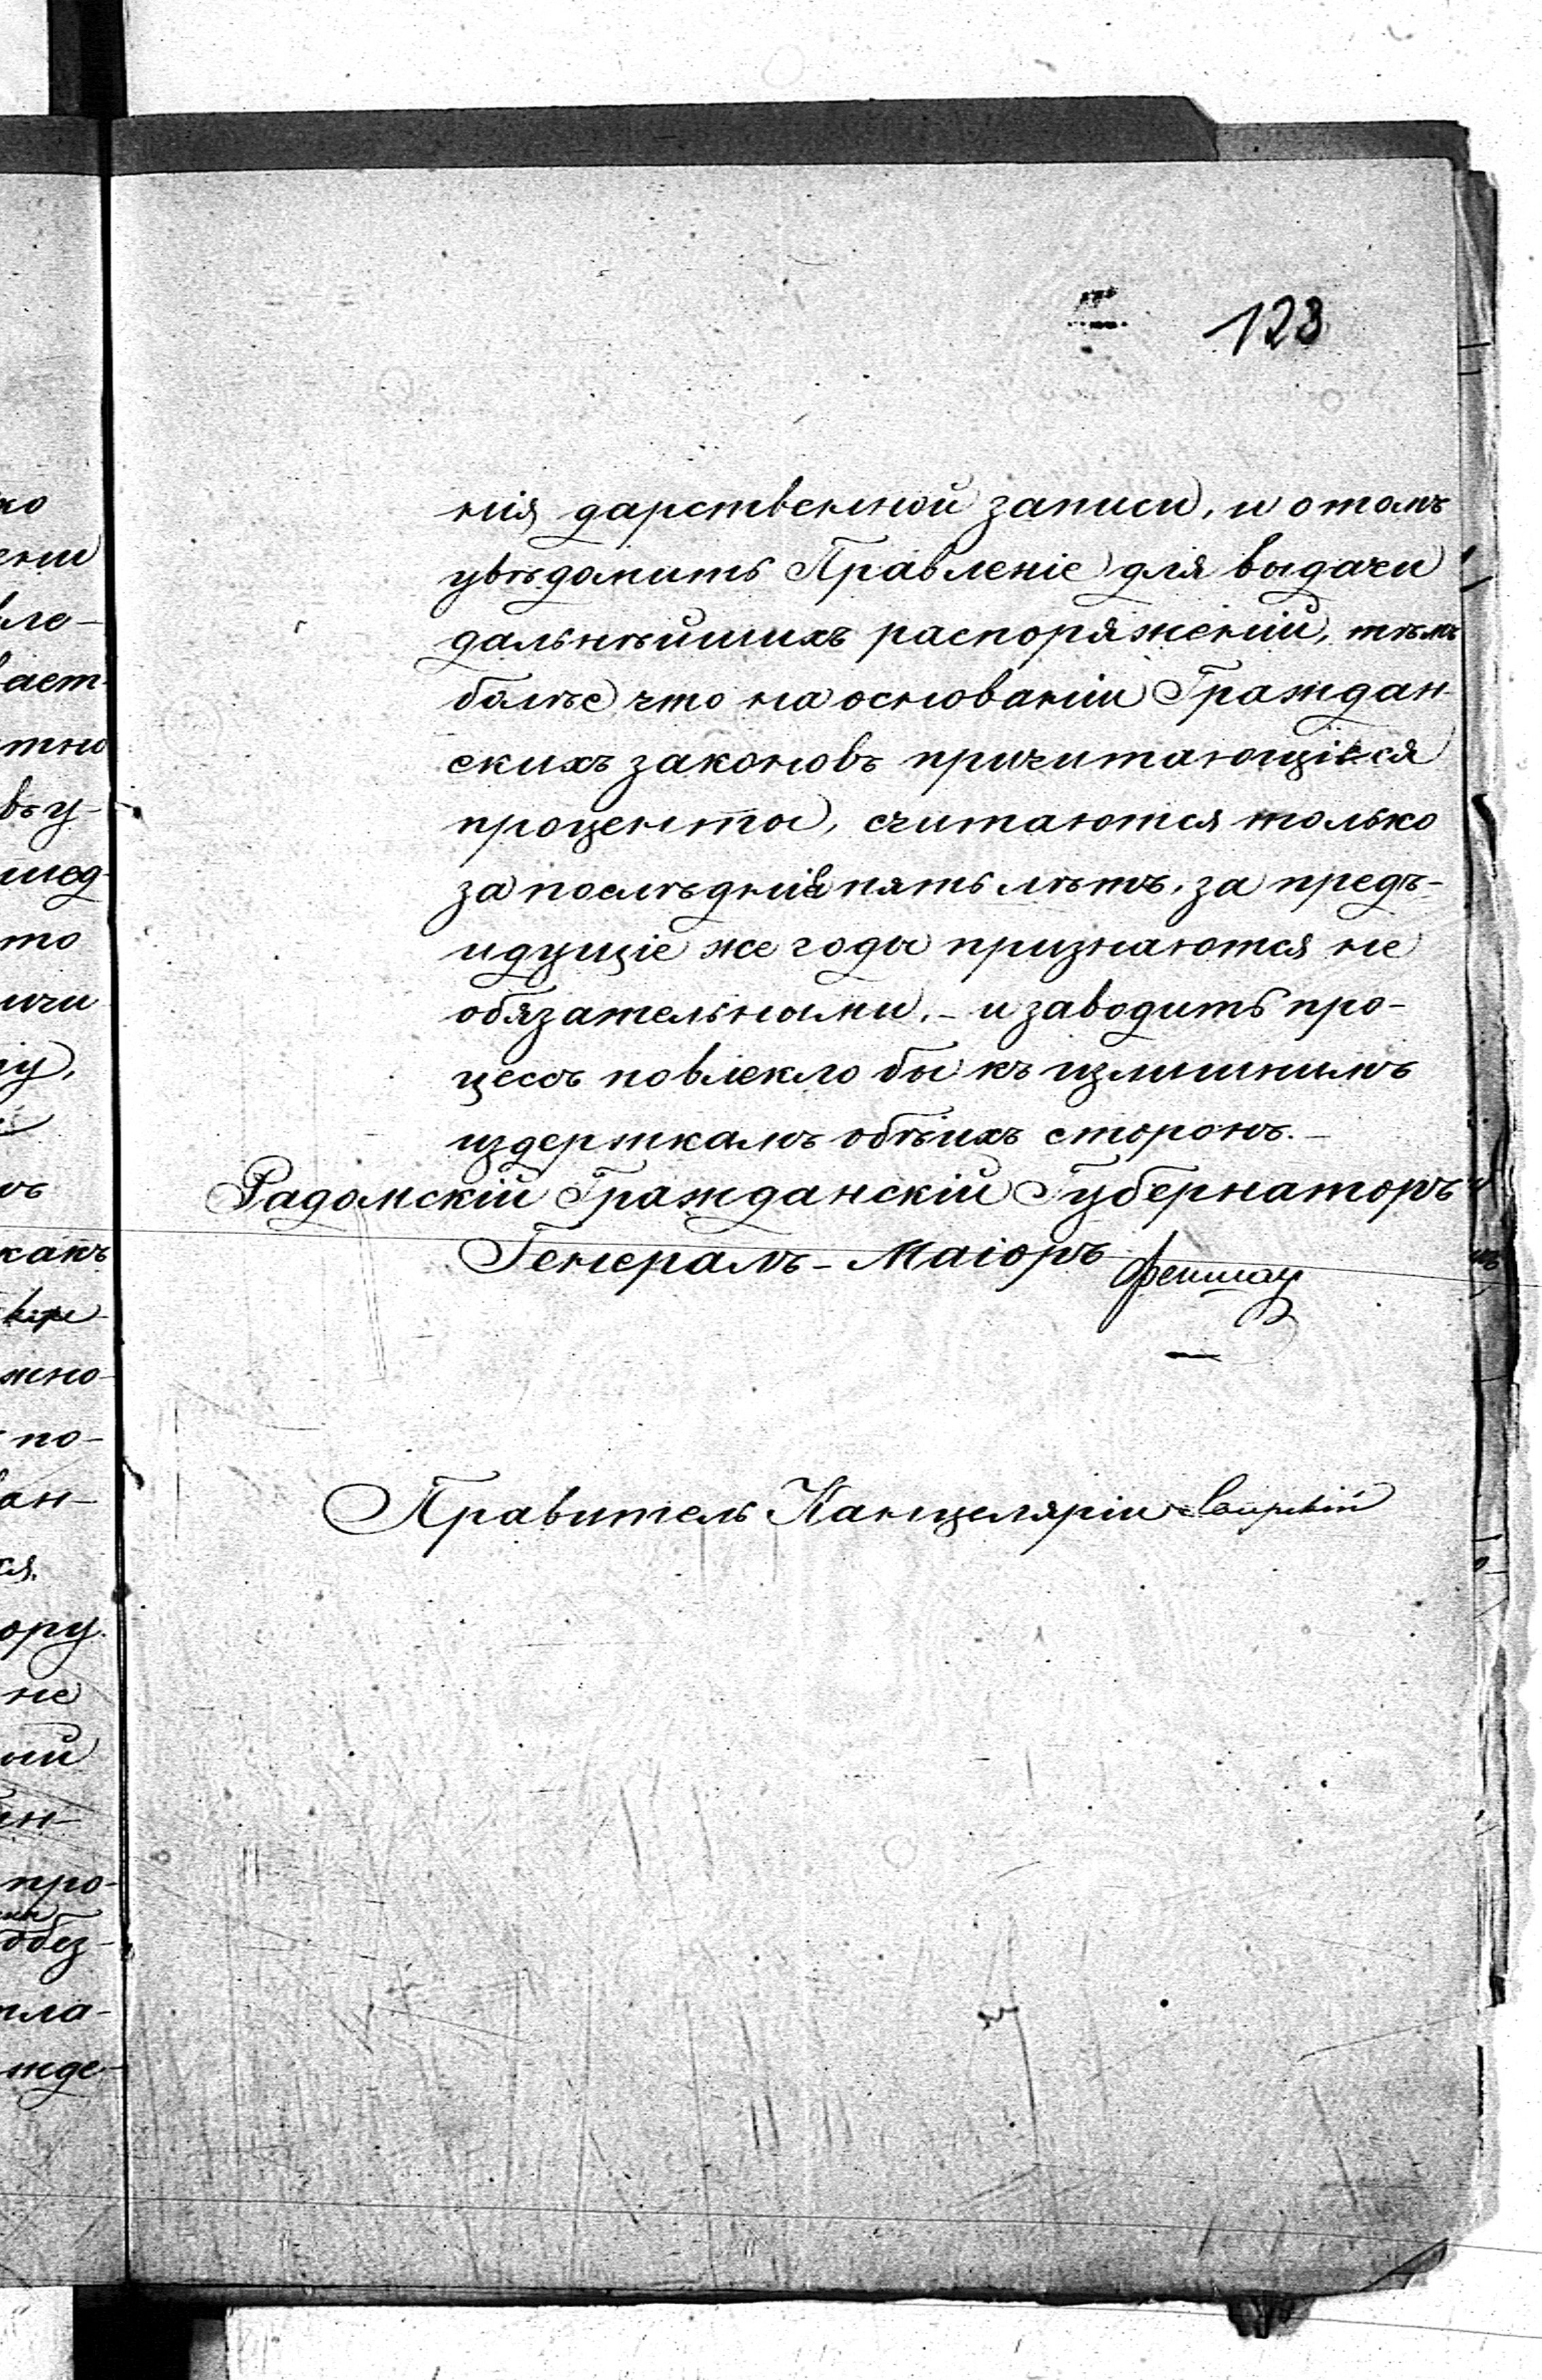 123
нія дарственной записи, и о томъ
увѣдомить Правленіе для выдачи
дальнѣйшихъ распоряженій, тѣмъ
болѣе что на основаніи Граждан-
скихъ законовъ причитающіеся
проценты, считаются только
за послѣднія пять лѣтъ, за предъ-
идущіе же годы признаются не
обязательными, - и заводить про-
цессъ повлекло бы къ излишнимъ
издержкамъ обѣихъ сторонъ. -
Радомскій Гражданскій Губернаторъ
Генералъ - Маіоръ
Правитель Канцеляріи